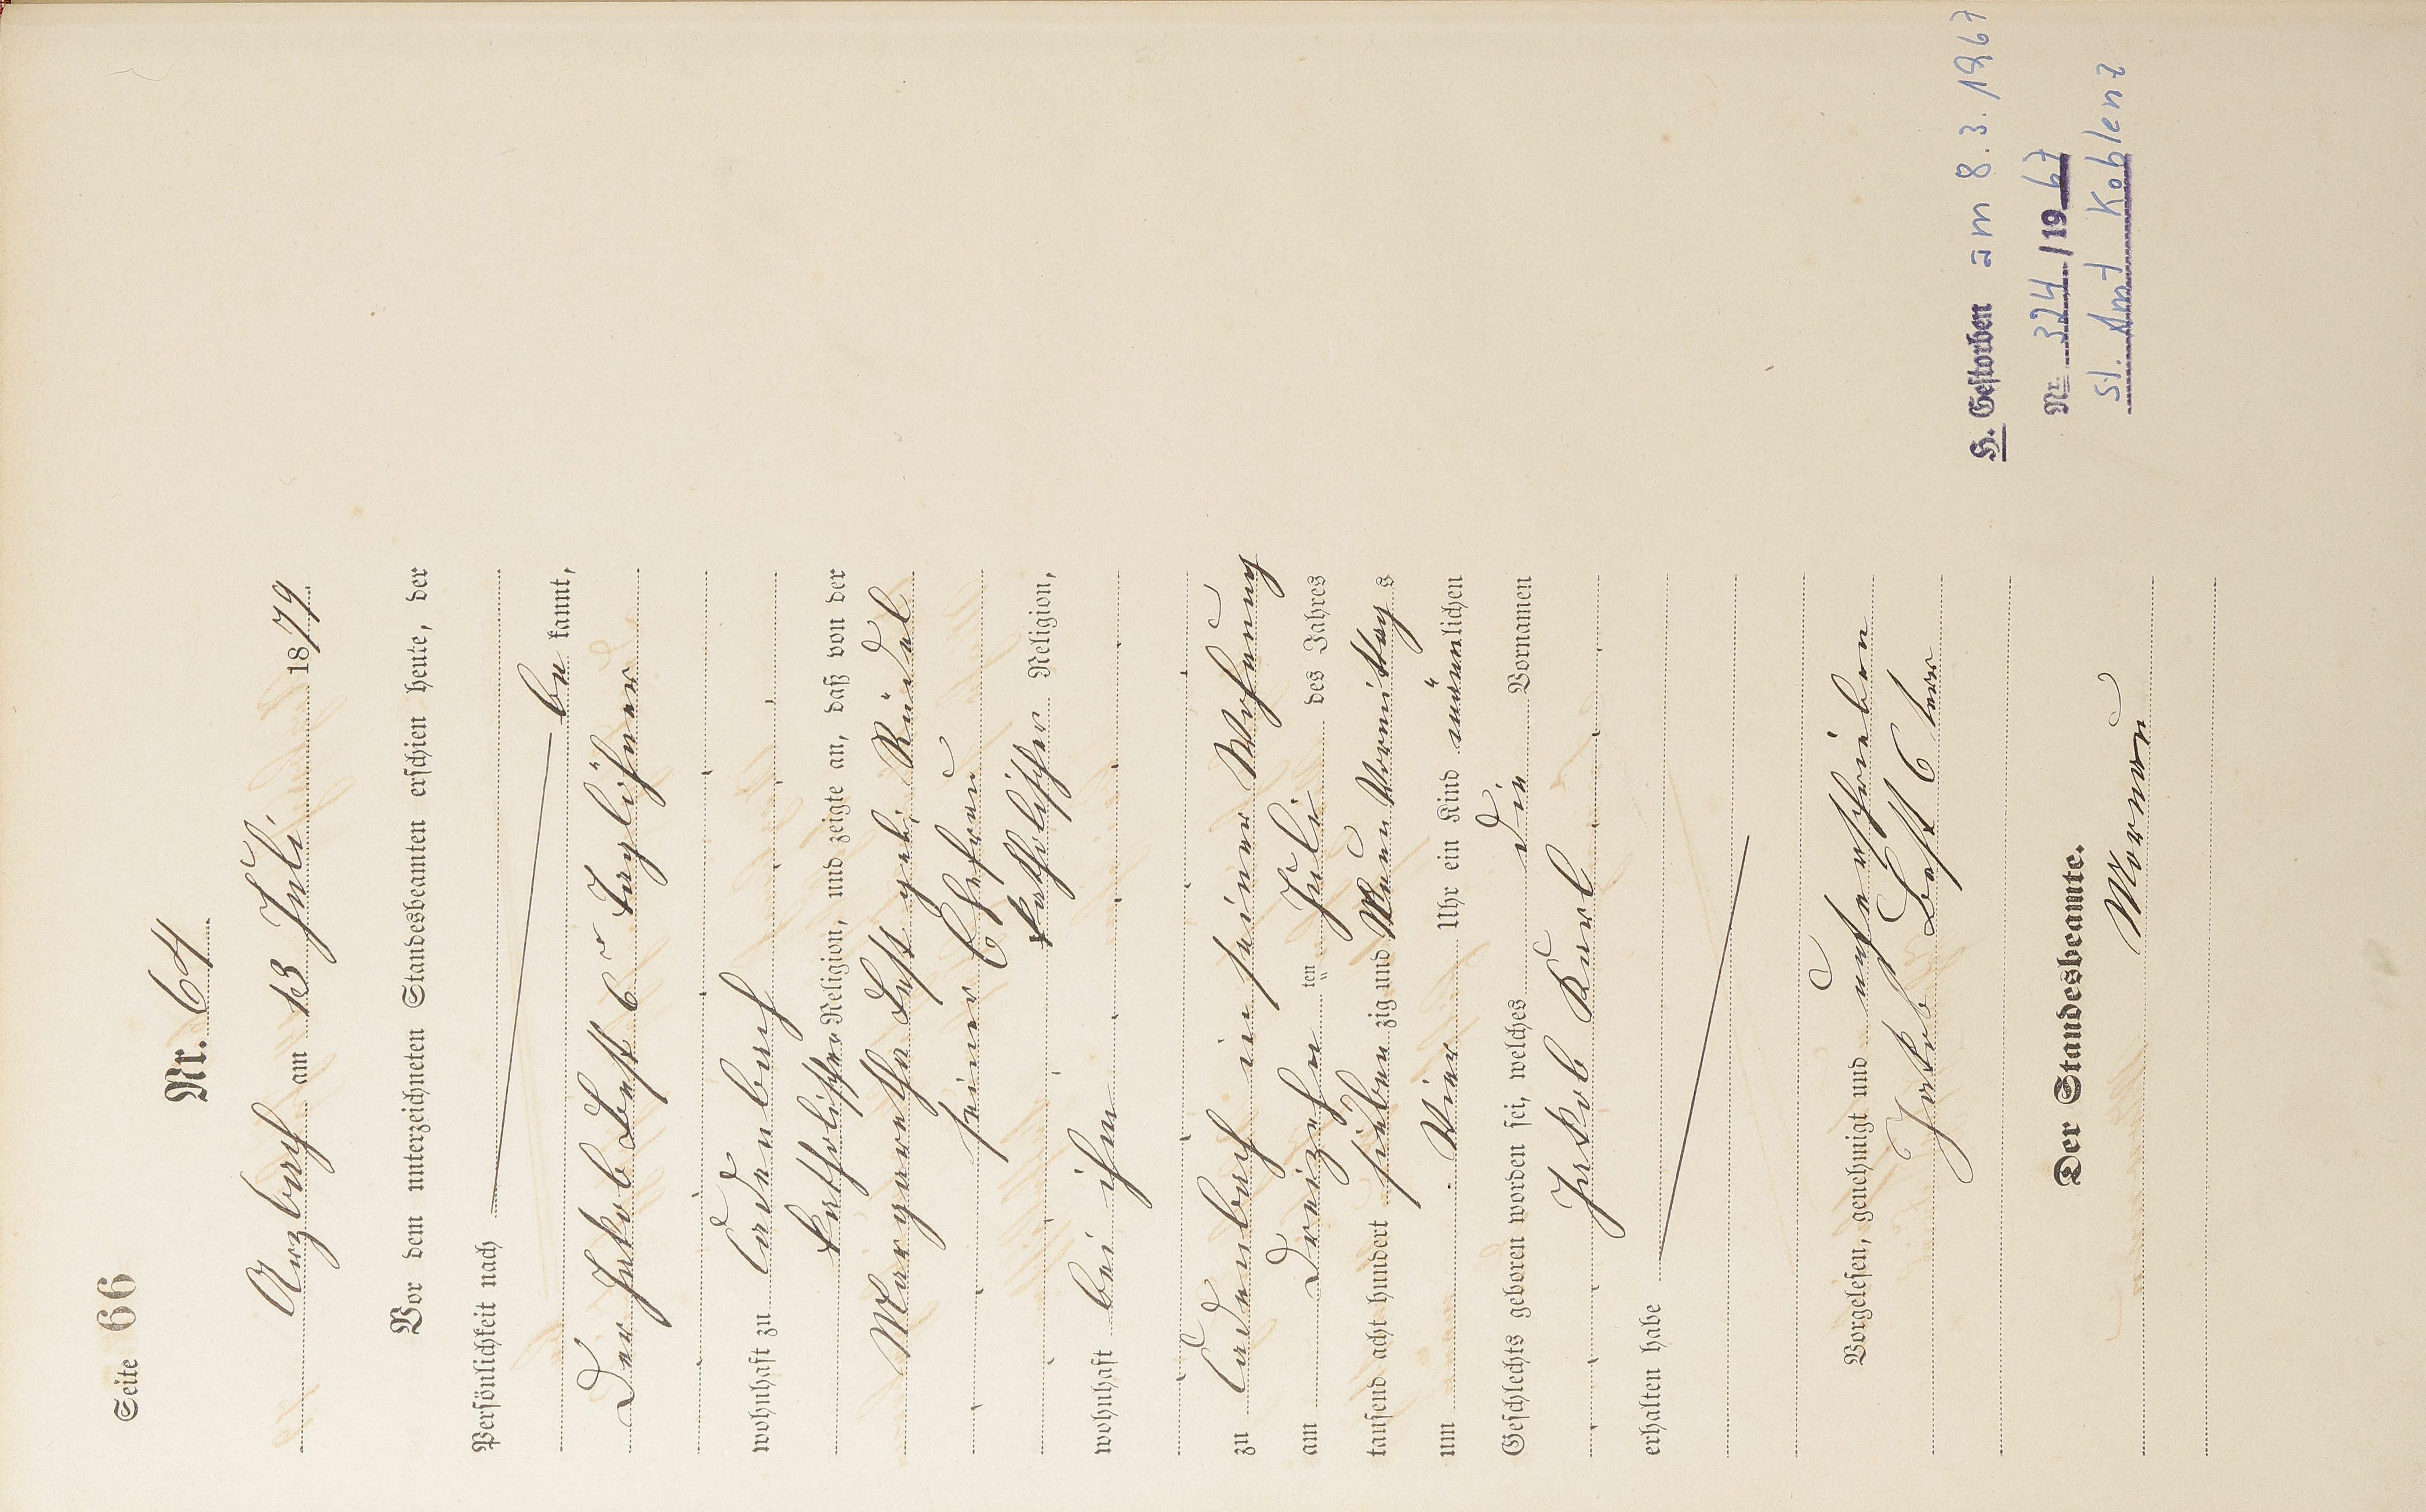 Seite 66
Nr. 64
Arzbach am 13 Juli 1879.
Vor dem unterzeichneten Standesbeamten erschien heute, der
Persönlichkeit nach
be kannt,
Der Jakob Best 6r Taglöhner
wohnhaft zu Cadenbach
katholischer Religion, und zeigte an, daß von der
Margaretha Best geb. Rindel
seiner Ehefrau
katholischer Religion,
wohnhaft bei ihm
zu Cadenbach in seiner Wohnung
am Dreizehn ten Juli des Jahres
tausend acht hundert sieben zig und Neun Vormittags
um Vier Uhr ein Kind männlichen
Geschlechts geboren worden sei, welches die Vornamen
Jakob Karl
erhalten habe
Vorgelesen, genehmigt und unterschrieben
Jakob Best 6 ter
Der Standesbeamte.
H. Gestorben am 8.3.1967
Nr. 324/1967
St. Amt Koblenz